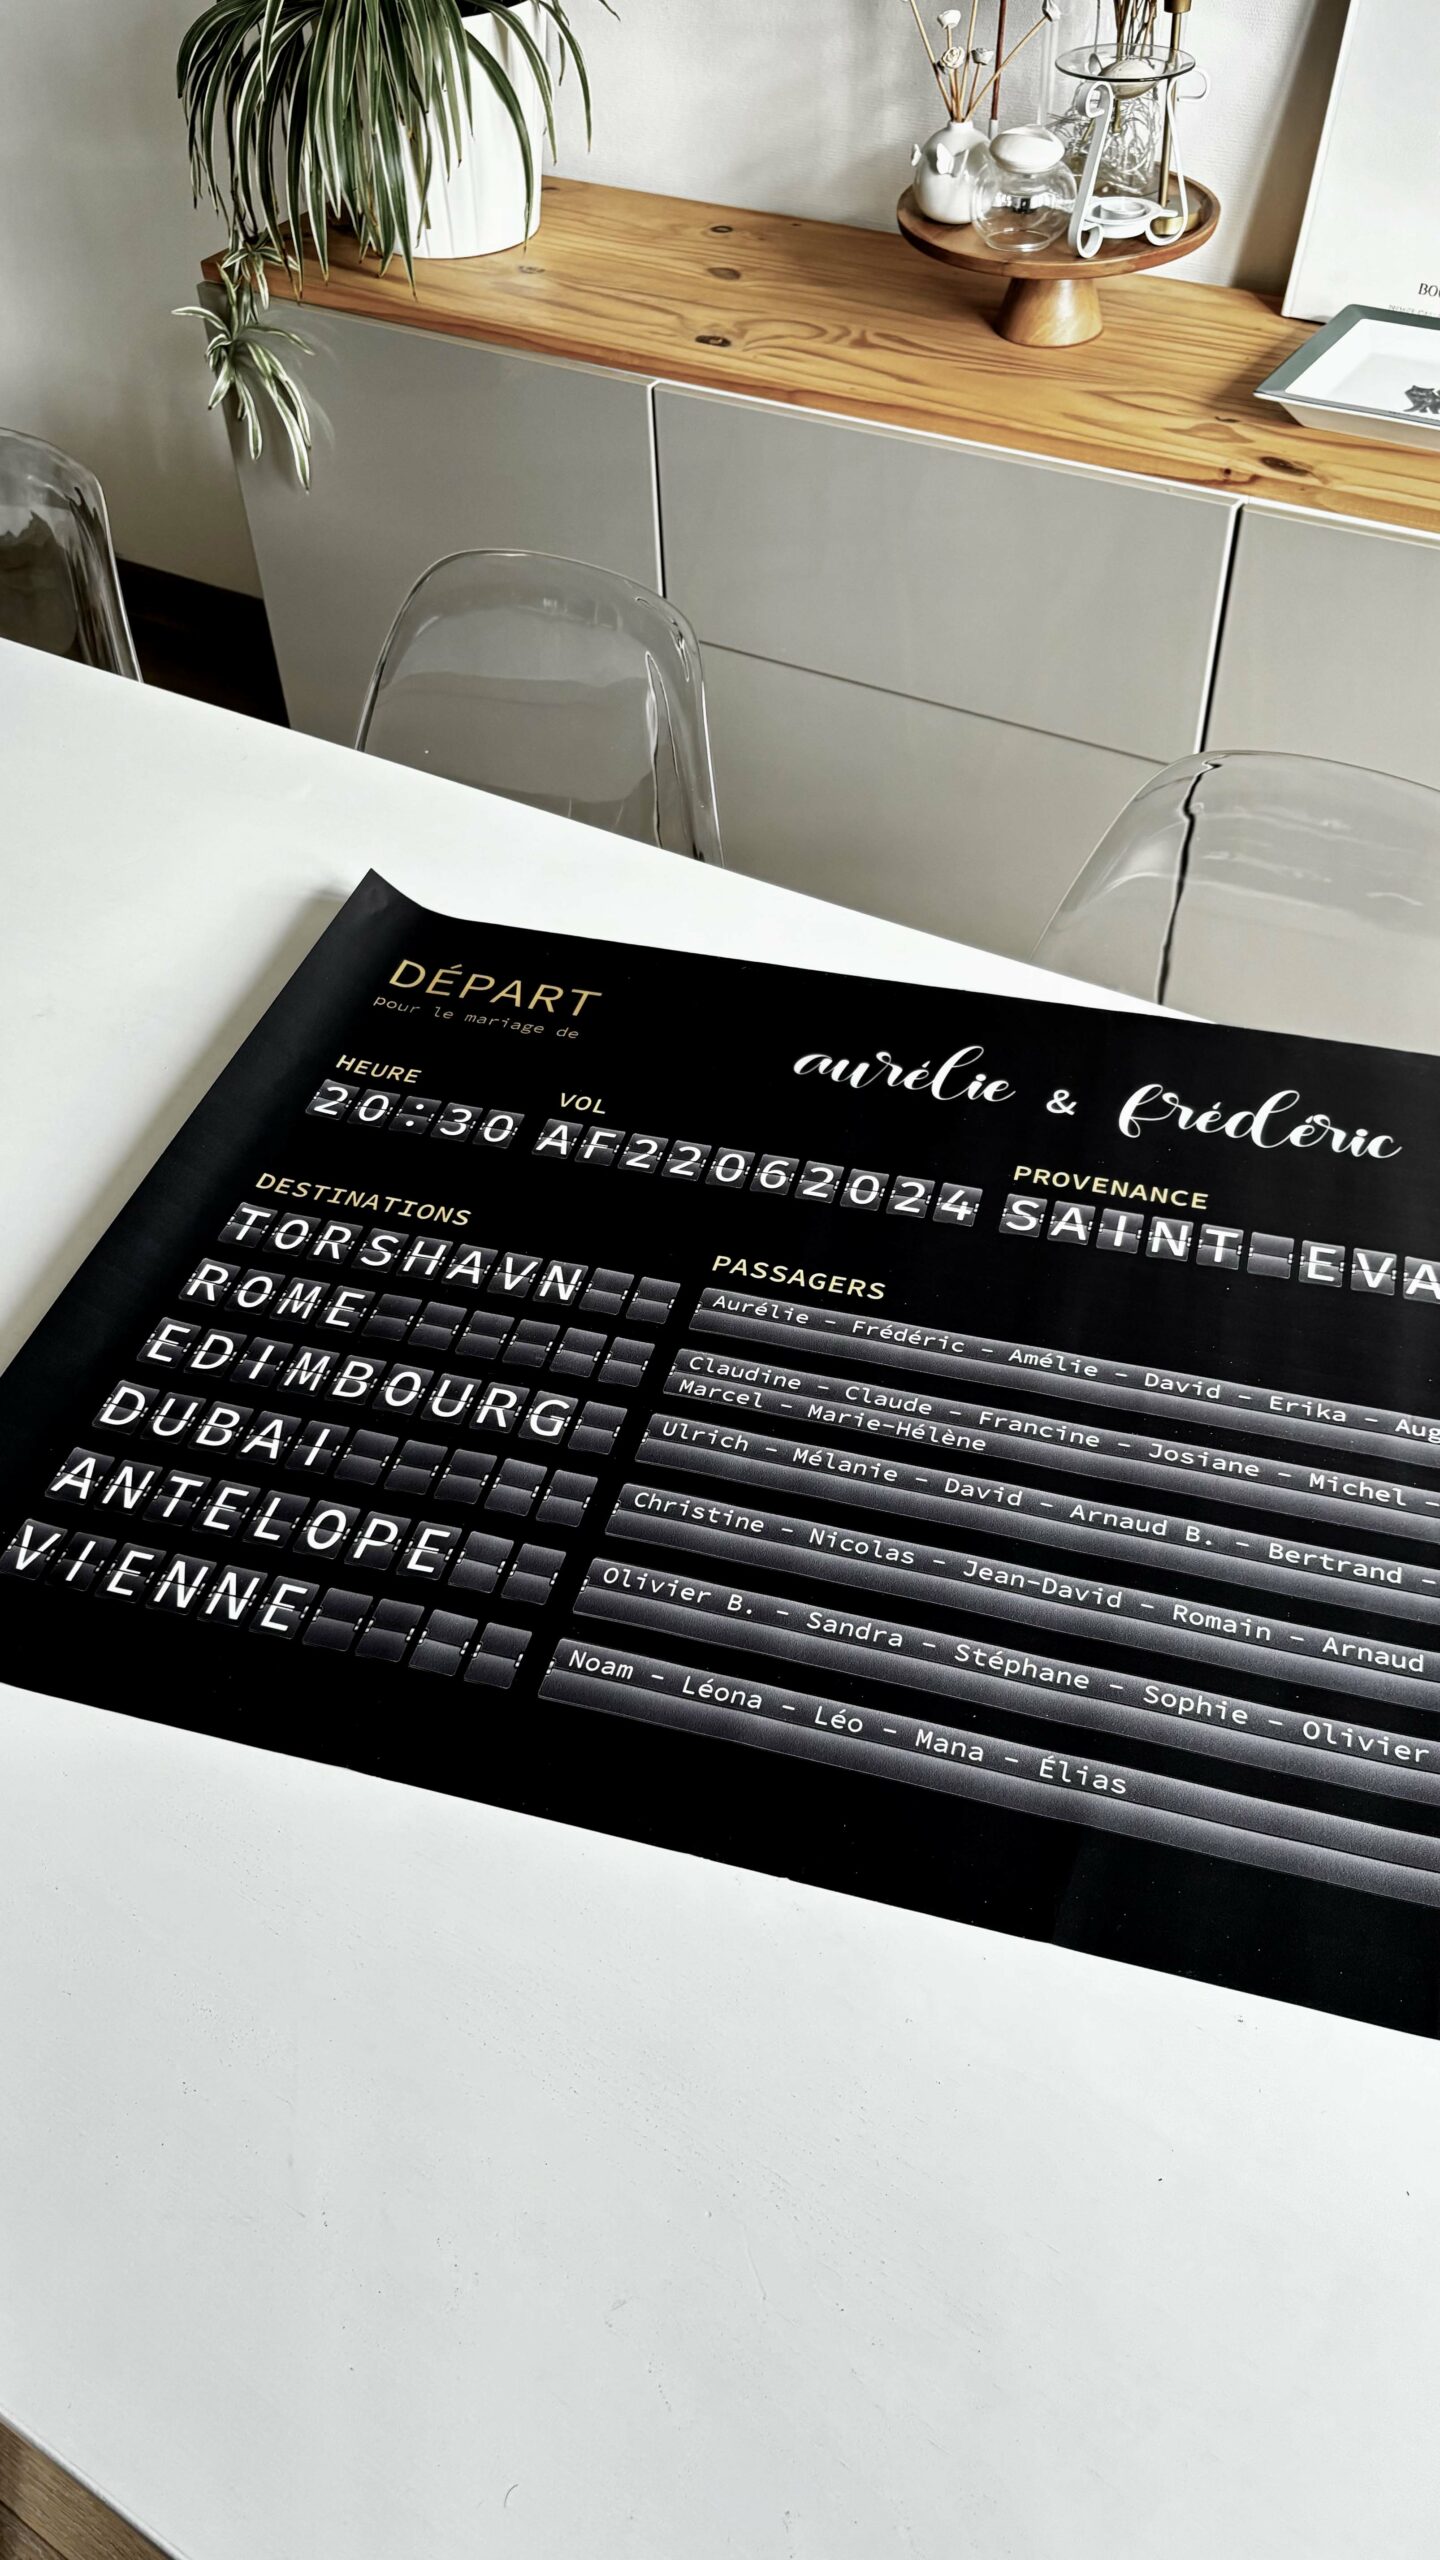 DÉPART
pour le mariage de
aurélie & frédéric
HEURE
20:30
VOL
AF22062024
PROVENANCE
SAINT EVA
DESTINATIONS
PASSAGERS
TORSHAVN
Aurélie - Frédéric - Amélie - David - Erika - Aug
ROME
Claudine - Claude - Francine - Josiane - Michel -
Marcel - Marie-Hélène
EDIMBOURG
Ulrich - Mélanie - David - Arnaud B. - Bertrand -
DUBAI
Christine - Nicolas - Jean-David - Romain - Arnaud
ANTELOPE
Olivier B. - Sandra - Stéphane - Sophie - Olivier
VIENNE
Noam - Léona - Léo - Mana - Élias